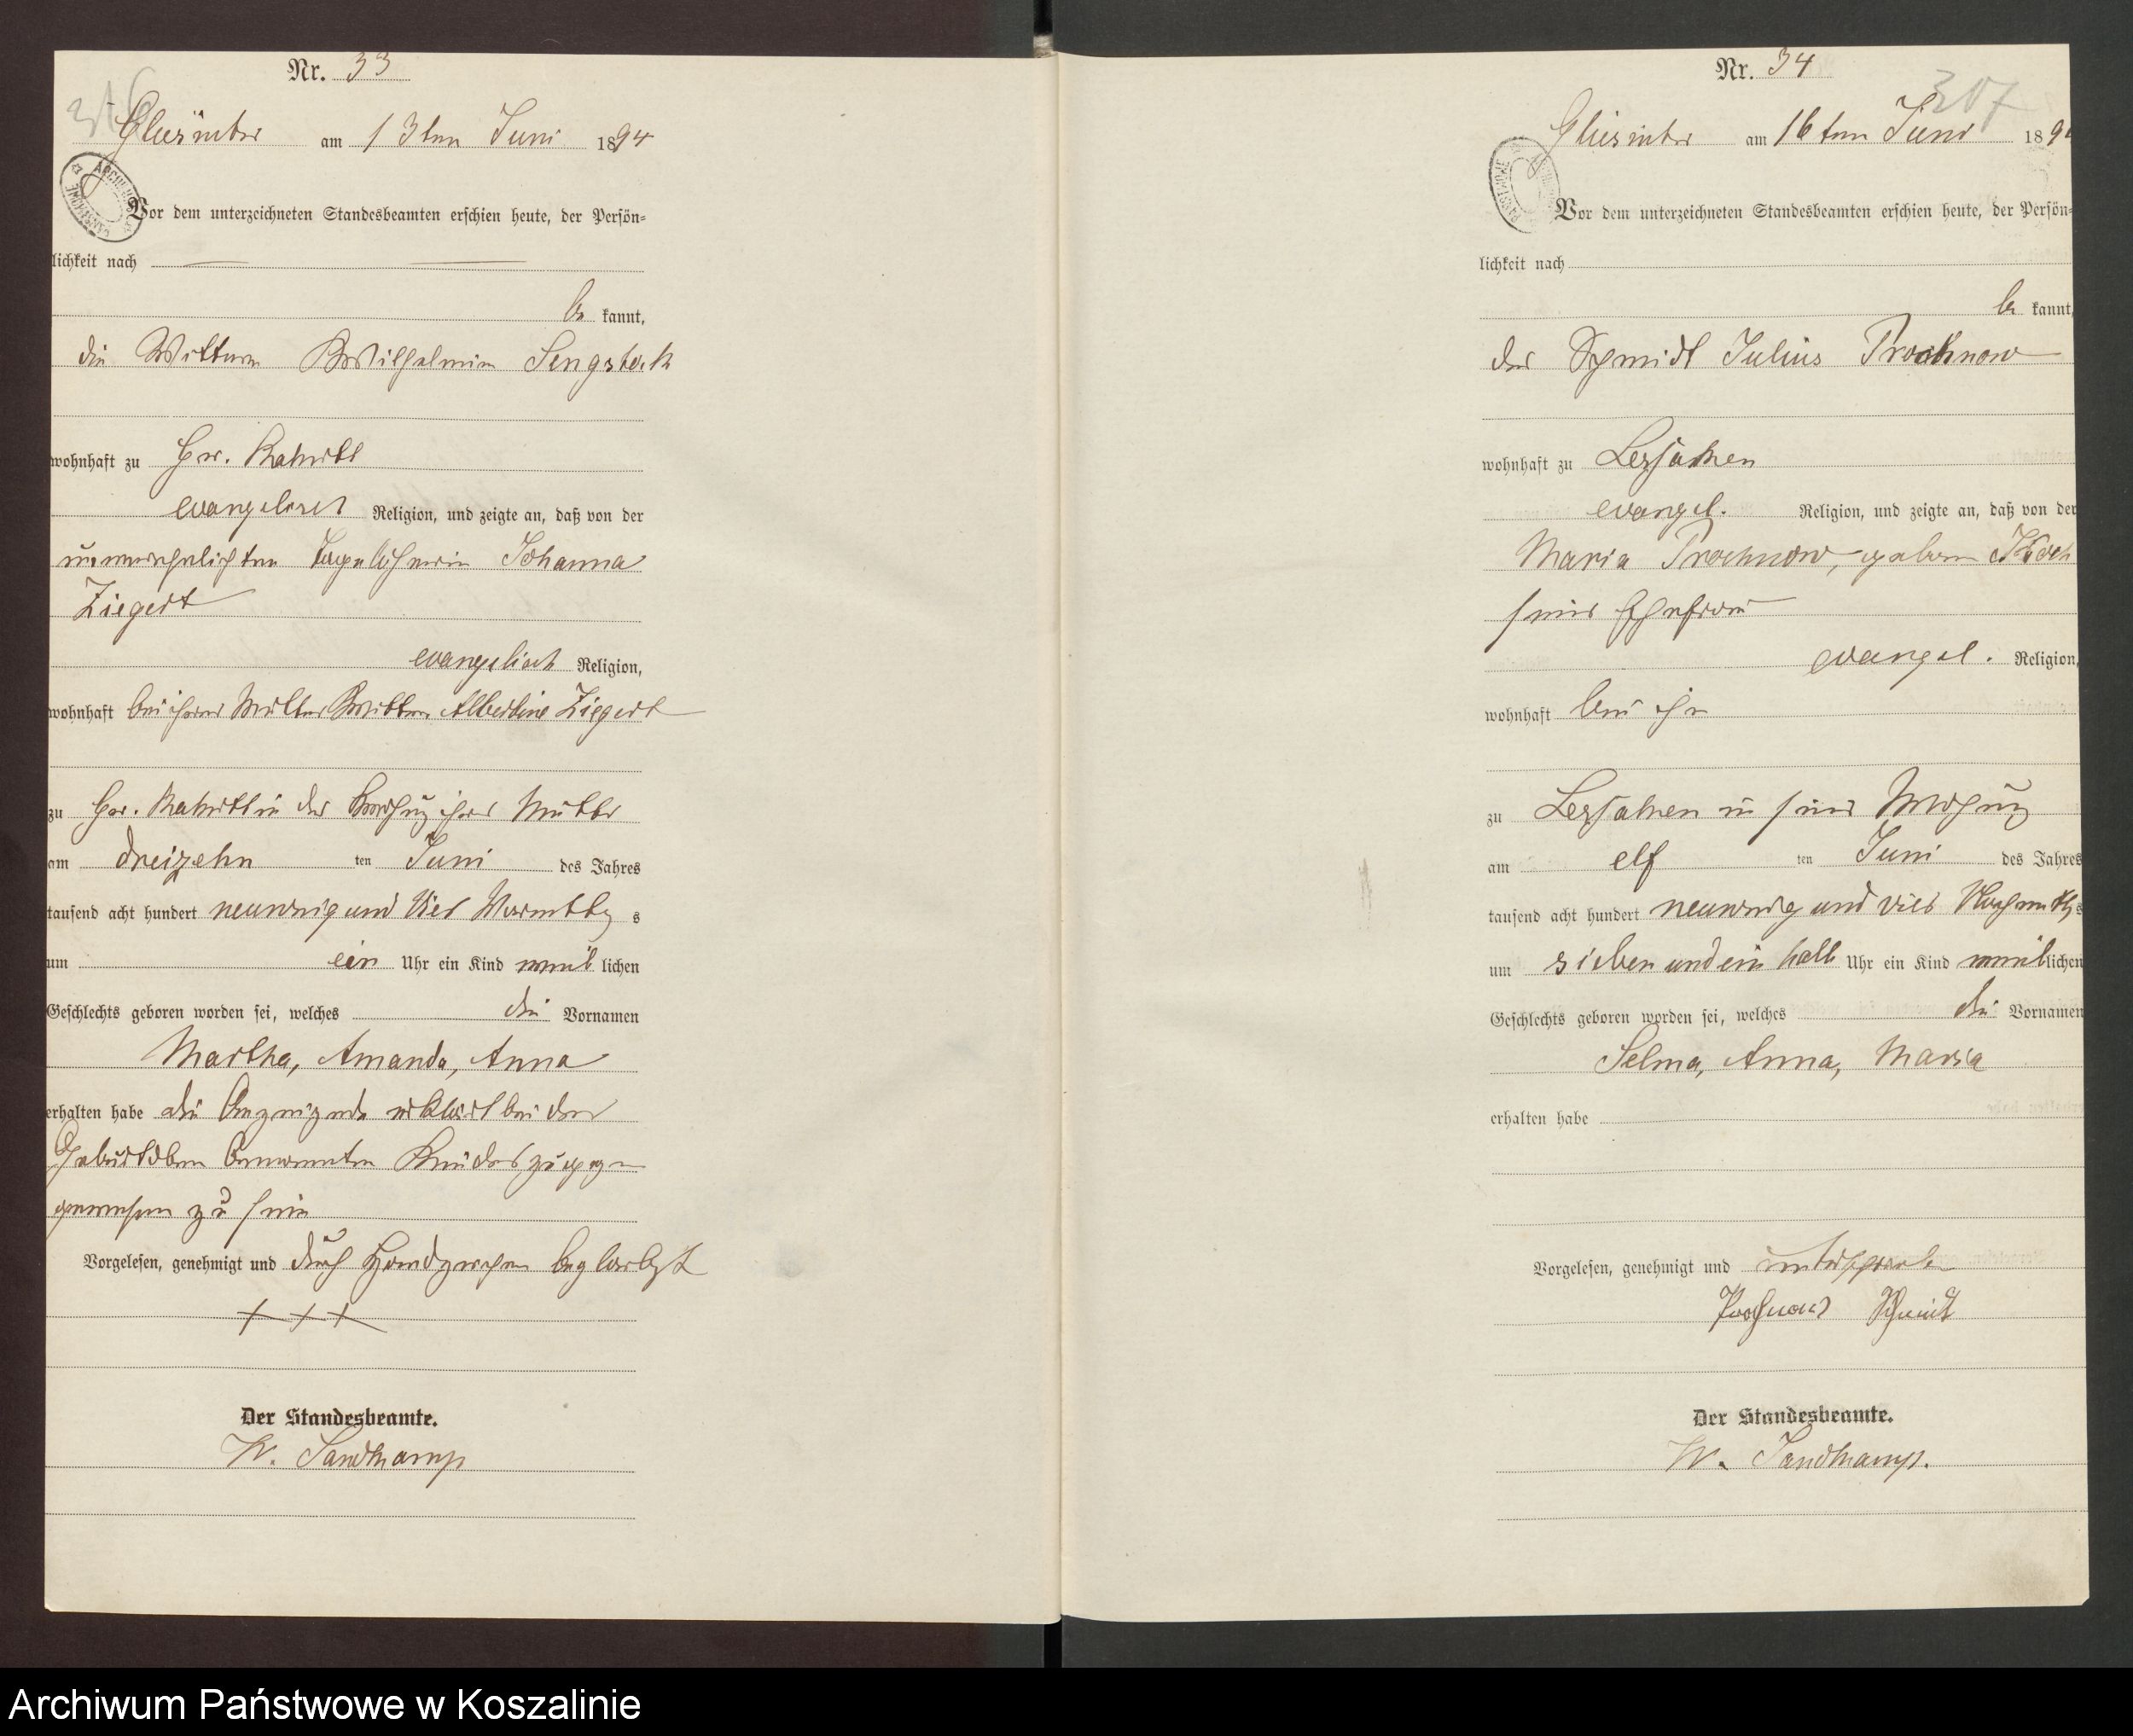 Nr. 33
am 13ten Juni 1894
Vor dem unterzeichneten Standesbeamten erschien heute, der Persön=
lichkeit nach
be kannt,
die Wittwe Wilhelmine Sengstock
wohnhaft zu Gr. Katwitt
evangelisch Religion, und zeigte an, daß von der
unverehelichten Tagelöhnerin Johanna
Ziegert
evangelisch Religion,
wohnhaft bei ihrer Mutter Wittwe Albertine Ziegert
zu Gr. Katwitt in der ihrer Mutter
am dreizehn ten Juni des Jahres
tausend acht hundert neunzig und vier Vormittag s
um ein Uhr ein Kind weib lichen
Geschlechts geboren worden sei, welches die Vornamen
Martha, Amanda, Anna
erhalten habe die Anzeigende erklärt bei der
Geburt oben benannten Kindes zugegen
gewesen zu sein
Vorgelesen, genehmigt und durch Handzeichen beglaubigt
+ + +
Der Standesbeamte.
W. Sandkamp
Nr. 34
307
am 16ten Juni 189
Vor dem unterzeichneten Standesbeamten erschien heute, der Persön=
lichkeit nach
be kannt,
der Schmidt Julius Prochnow
wohnhaft zu
evangel. Religion, und zeigte an, daß von der
Maria Prochnow, geboren Koch
seine Ehefrau
evangel. Religion,
wohnhaft bei ihm
zu in seiner Wohnung
am elf ten Juni des Jahres
tausend acht hundert neunzig und vier Nachmittags
um sieben und ein halb Uhr ein Kind weiblichen
Geschlechts geboren worden sei, welches die Vornamen
Selma, Anna, Maria
erhalten habe
Vorgelesen, genehmigt und unterschrieben
Prochnow Schmidt
Der Standesbeamte.
W. Sandkamp.
Archiwum Państwowe w Koszalinie